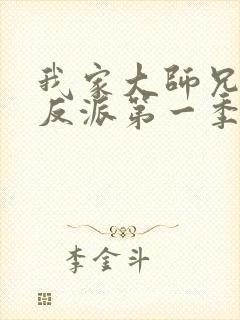 我家大師兄
反派第一季
李金斗